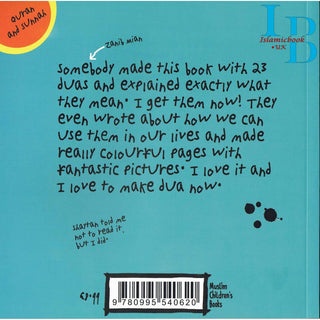 Quran
and Sunnah
IB
Islamicbook
•UK
zanib mian
Somebody made this book with 23
duas and explained exactly what
they mean. I get them now! They
even wrote about how we can
use them in our lives and made
really colourful pages with
fantastic pictures. I love it and
I love to make dua now.
shaytan told me
not to read it,
but I did.
Muslim
Children's
Books
9 780995 540620